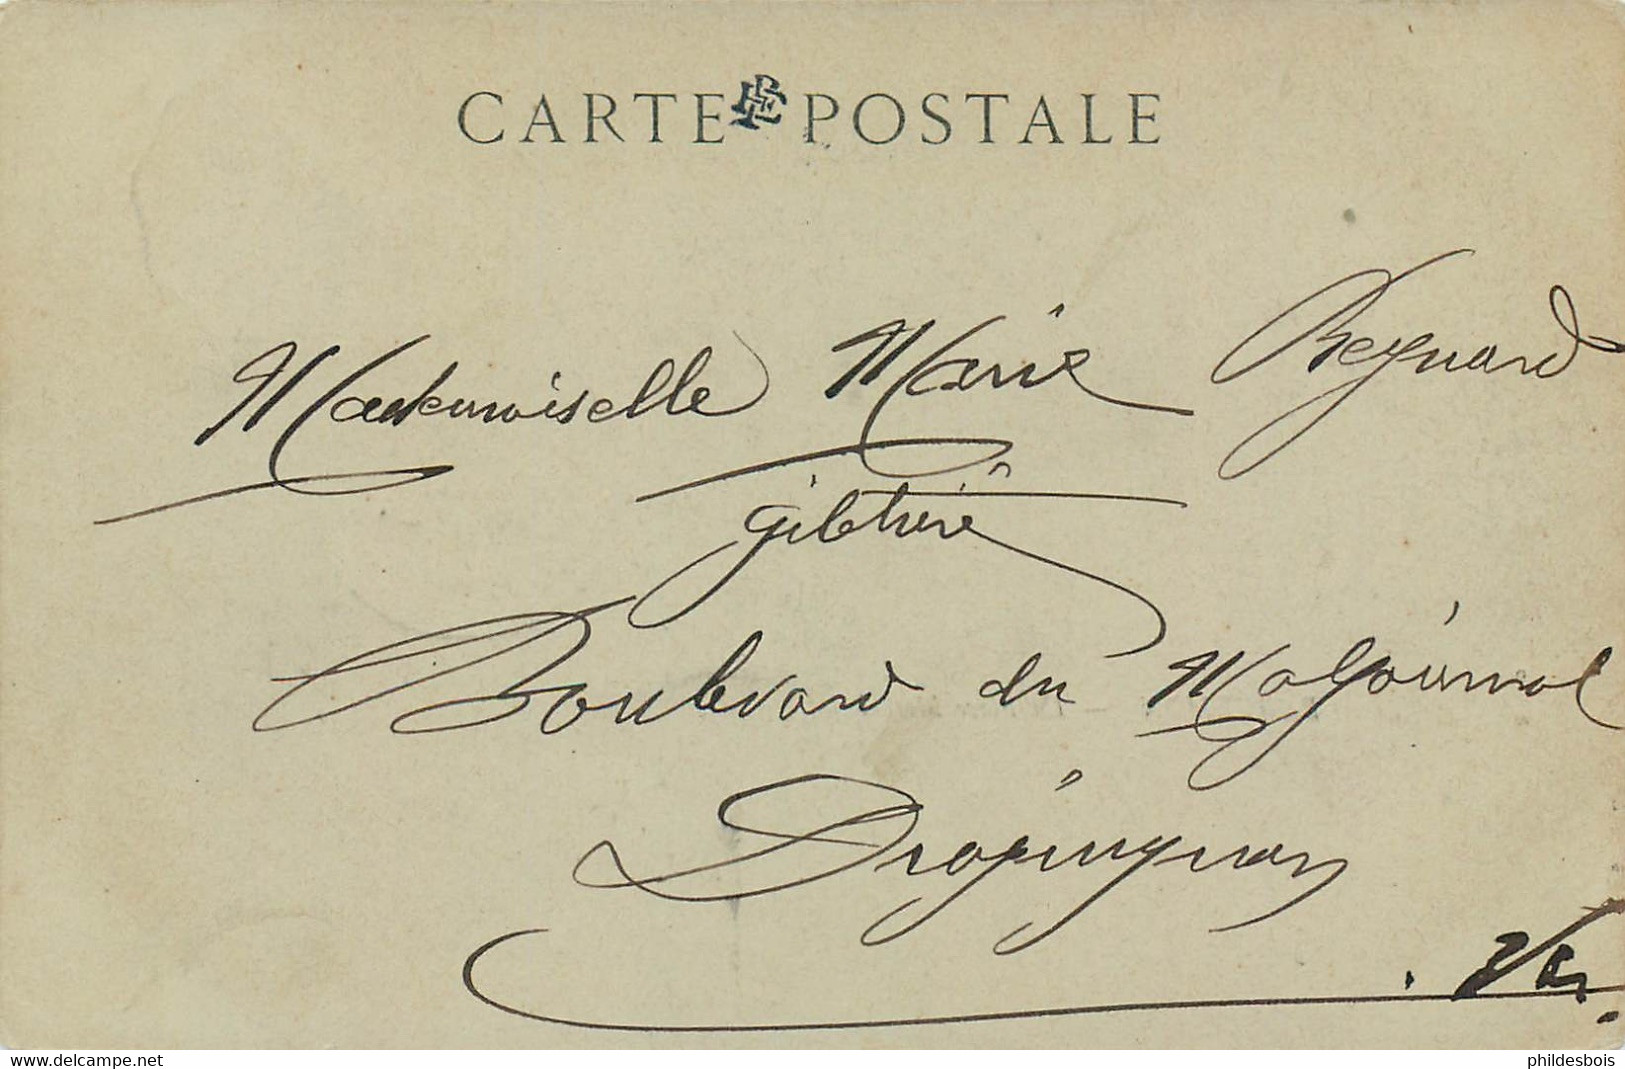 CARTE POSTALE
Mademoiselle Marie Reynard
giletière
Boulevard du
Draguignan
Var.
www.delcampe.net phildesbois